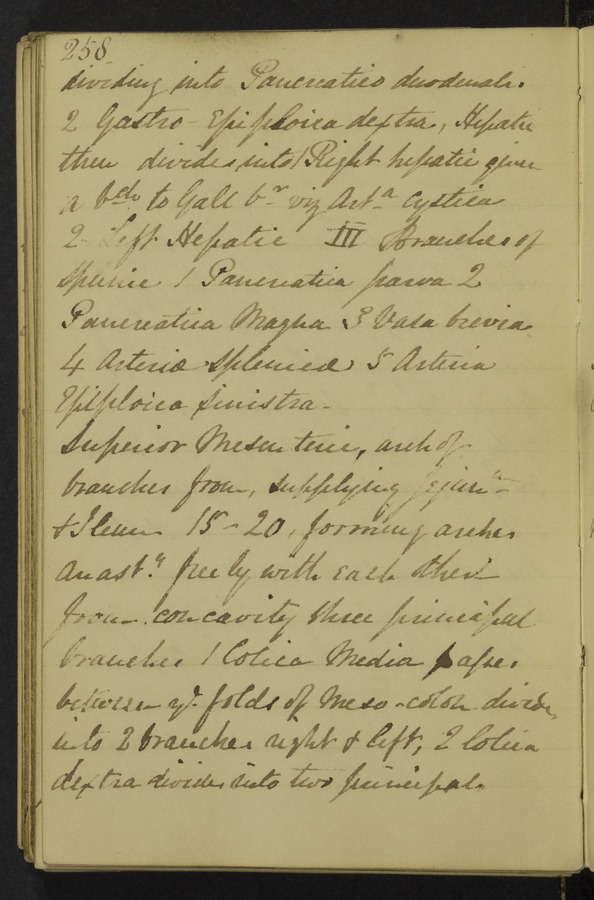 258
dividing into Pancreatico duodenals.
2 Gastro-Epiploica dextra, Hepatic
then divides into 1 Right hepatic gives
a bch to Gall br viz Arta Cystica
2 Left Hepatic III Branches of
Splenic 1 Pancreatica parva 2
Pancreatica Magna 3 Vasa brevia
4 Arteriæ Splenicæ 5 Arteria
Epiploica sinistra.
Superior Mesenteric, arch of
branches from, supplying
& Ileum 15-20, forming arches
anast.g freely with each other
from concavity three principal
branches 1 Colica Media passes
between ye folds of Meso-colon divides
into 2 branches right & left, 2 Colica
dextra divides into two principal